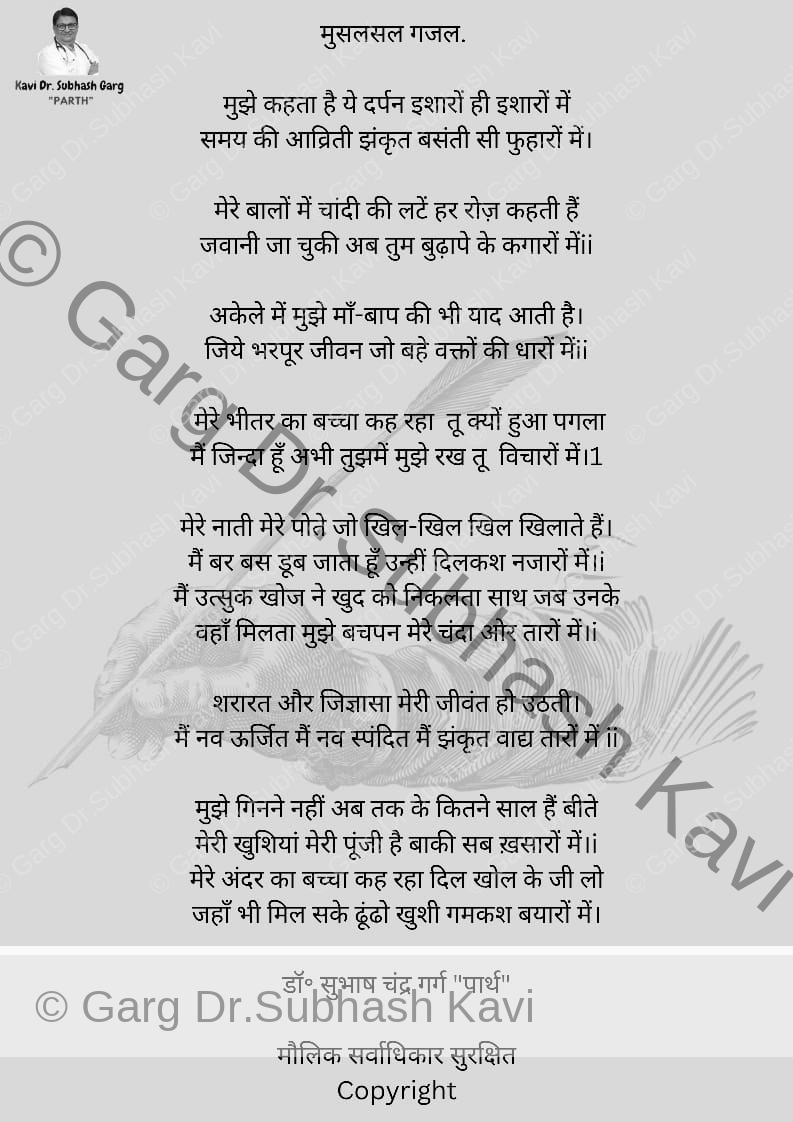 Kavi Dr. Subhash Garg
"PARTH"
मुसलसल गजल.
मुझे कहता है ये दर्पन इशारों ही इशारों में
समय की आव्रिती झंकृत बसंती सी फुहारों में।
मेरे बालों में चांदी की लटें हर रोज़ कहती हैं
जवानी जा चुकी अब तुम बुढ़ापे के कगारों मेंii
अकेले में मुझे माँ-बाप की भी याद आती है।
जिये भरपूर जीवन जो बहे वक्तों की धारों मेंii
मेरे भीतर का बच्चा कह रहा तू क्यों हुआ पगला
मैं जिन्दा हूँ अभी तुझमें मुझे रख तू विचारों में।1
मेरे नाती मेरे पोते जो खिल-खिल खिल खिलाते हैं।
मैं बर बस डूब जाता हूँ उन्हीं दिलकश नजारों में।i
मैं उत्सुक खोज ने खुद को निकलता साथ जब उनके
वहाँ मिलता मुझे बचपन मेरे चंदा और तारों में।i
शरारत और जिज्ञासा मेरी जीवंत हो उठती।
मैं नव ऊर्जित मैं नव स्पंदित मैं झंकृत वाद्य तारों में ii
मुझे गिनने नहीं अब तक के कितने साल हैं बीते
मेरी खुशियां मेरी पूंजी है बाकी सब ख़सारों में।i
मेरे अंदर का बच्चा कह रहा दिल खोल के जी लो
जहाँ भी मिल सके ढूंढो खुशी गमकश बयारों में।
डॉ॰ सुभाष चंद्र गर्ग "पार्थ"
© Garg Dr.Subhash Kavi
मौलिक सर्वाधिकार सुरक्षित
Copyright
© Garg Dr.Subhash Kavi